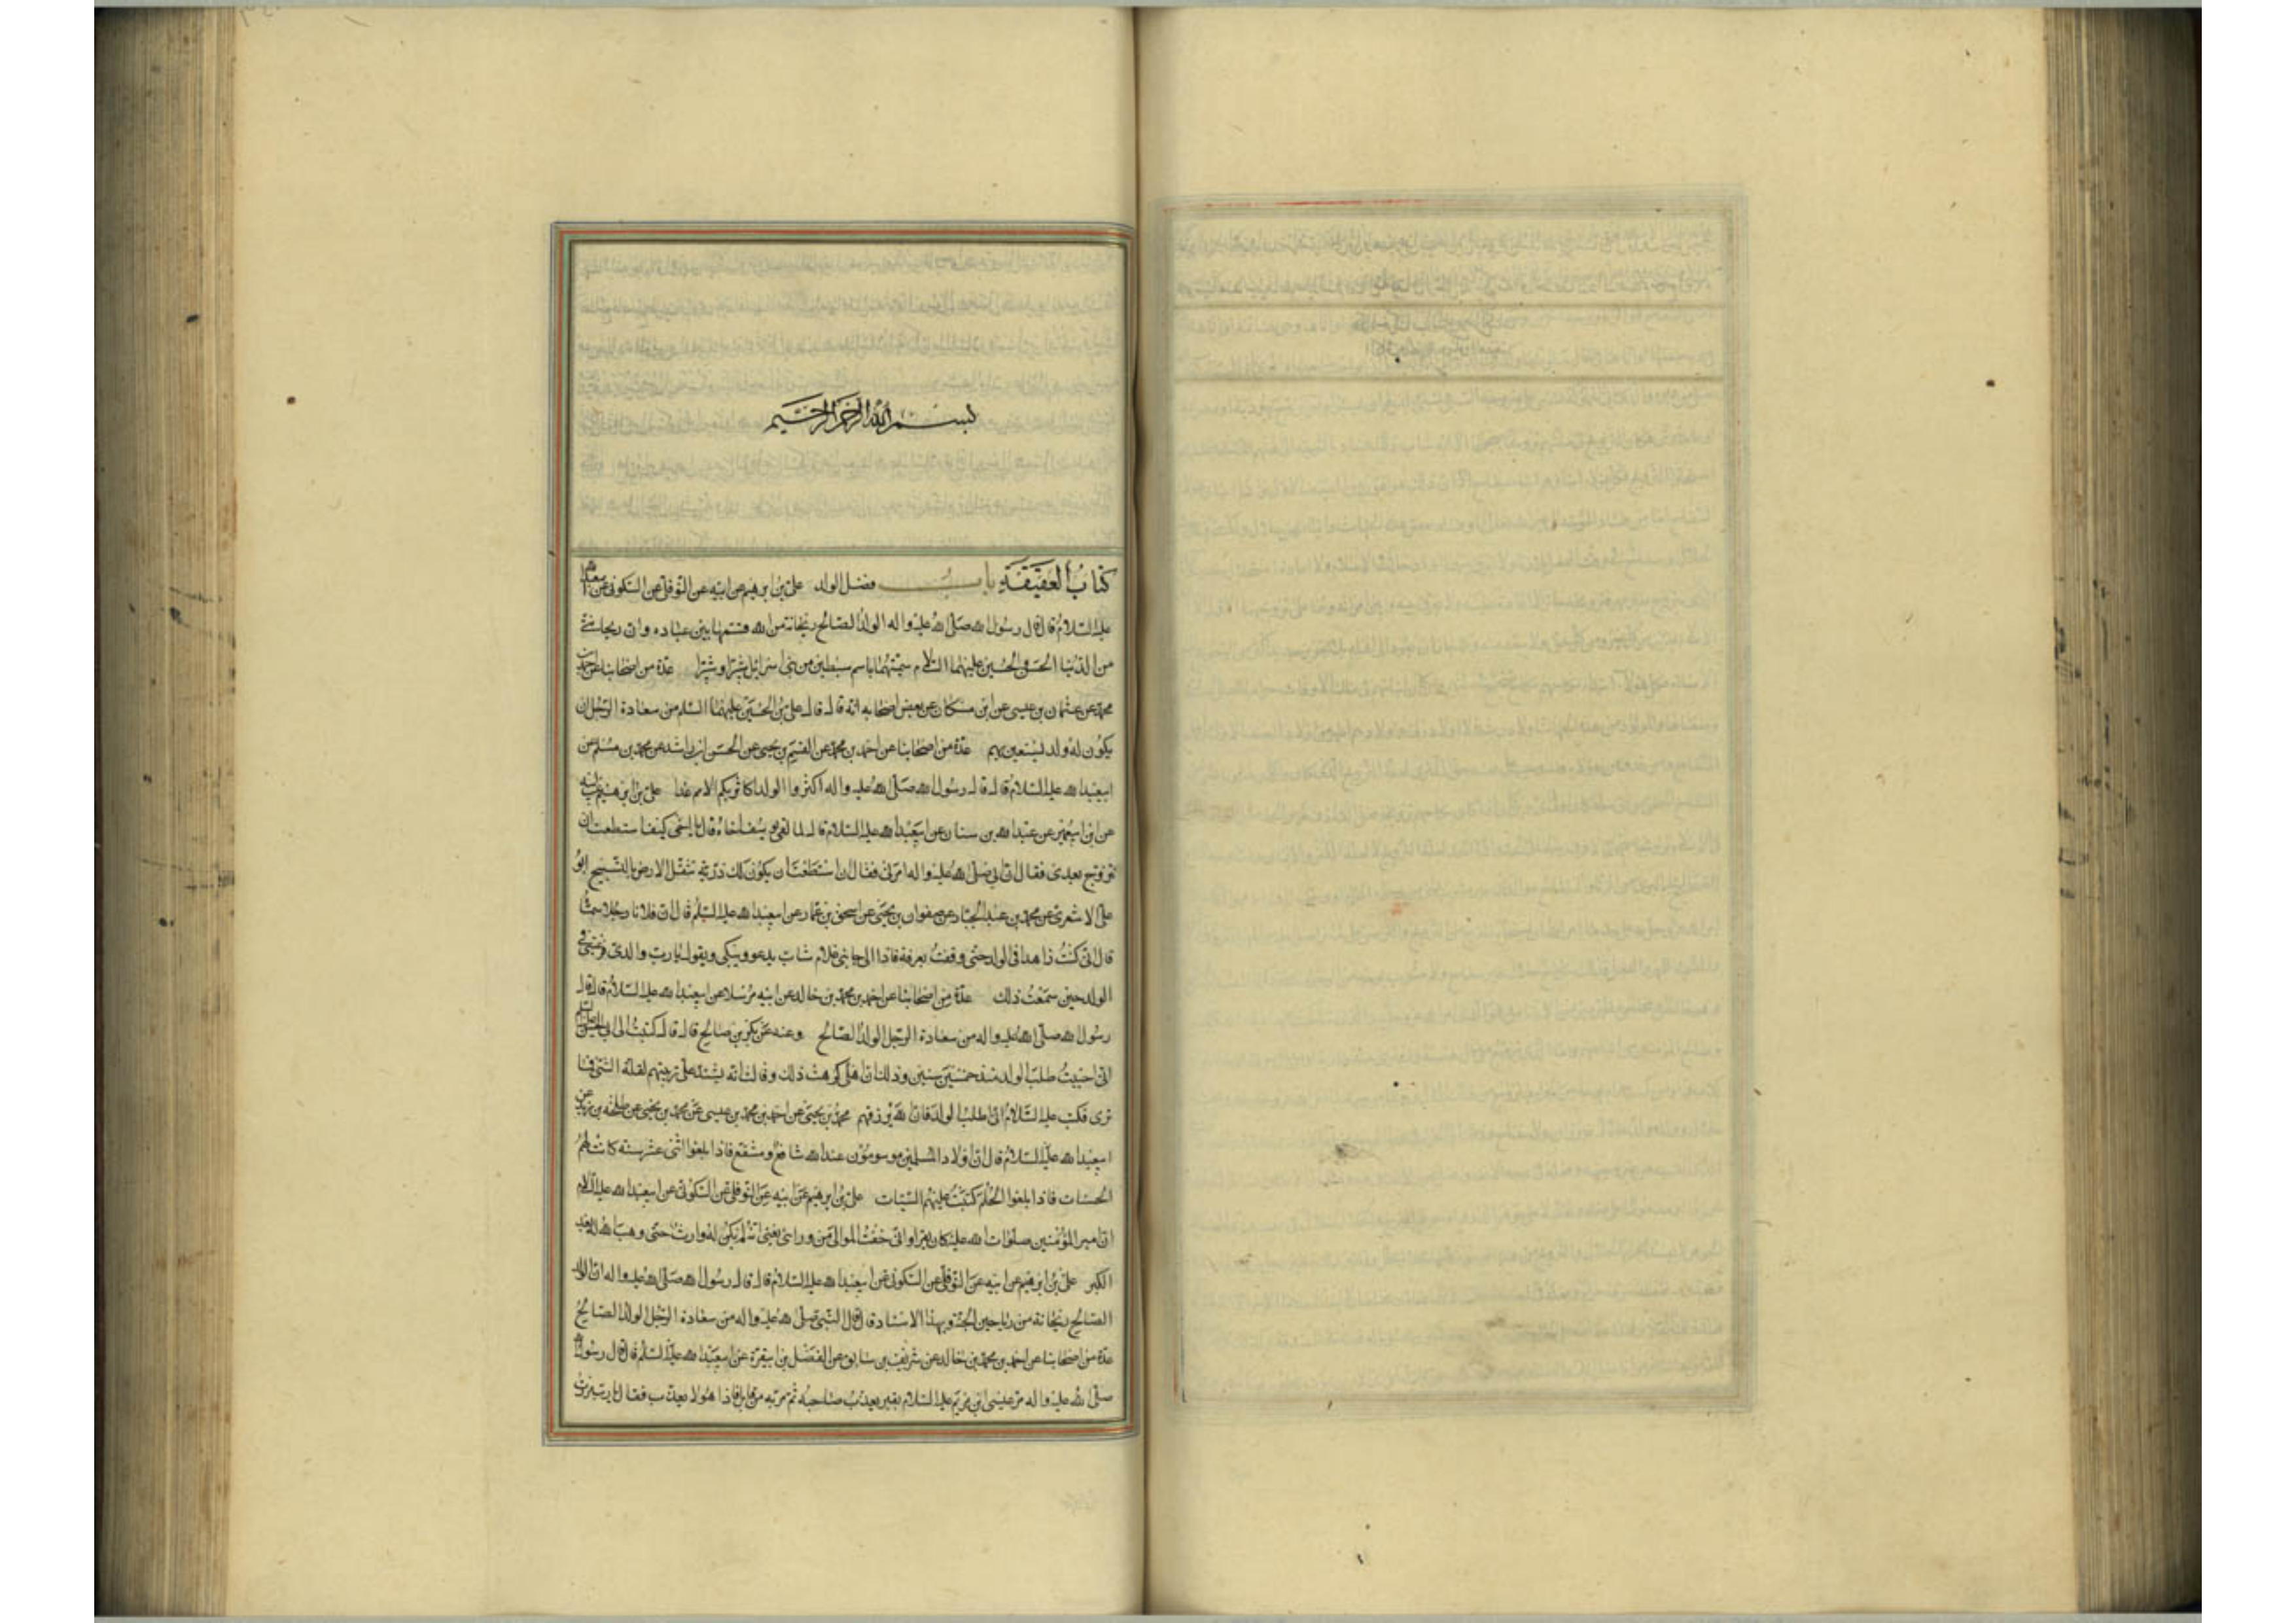 بسم الله الرحمن الرحيم
كتاب العقيقة باب فضل الولد علي بن ابرهيم عن ابيه عن النوفلي عن السكوني عن
عليه السلام قال قال رسول الله صلى الله عليه واله الولد الصالح ريحانة من الله قسمها بين عباده وان ريحانتي
من الدنيا الحسن والحسين عليهما السلام سميتهما باسم سبطين من بني اسرائيل شبرا وشبيرا عدة من اصحابنا عن احمد بن
محمد عن عثمان بن عيسى عن ابن مسكان عن بعض اصحابه انه قال قال علي بن الحسين عليهما السلم من سعادة الرجل ان
يكون له ولد يستعين بهم عدة من اصحابنا عن احمد بن محمد عن القسم بن يحيى عن الحسن بن راشد عن محمد بن مسلم عن
ابيعبد الله عليه السلام قال قال رسول الله صلى الله عليه واله اكثروا الولد اكاثر بكم الامم غدا علي بن ابرهيم عن ابيه
عن ابن ابيعمير عن عبد الله بن سنان عن ابيعبد الله عليه السلام قال لما لقي يوسف اخاه قال يا اخي كيف استطعت ان
تزوج بعدي فقال ان ابي صلى الله عليه واله امرني فقال ان استطعت ان يكون لك ذرية تثقل الارض بالتسبيح ابو
علي الاشعري عن محمد بن عبد الجبار عن صفوان بن يحيى عن اسحق بن عمار عن ابيعبد الله عليه السلم قال ان فلانا رجلا سماه
قال اني كنت زاهدا في الولد حتى وقفت بعرفة فاذا الى جانبي غلام شاب يدعو ويبكي ويقول يا رب والدي والدي فرغبني في
الولد حين سمعت ذلك عدة من اصحابنا عن احمد بن محمد بن خالد عن ابيه مرسلا عن ابيعبد الله عليه السلام قال قال
رسول الله صلى الله عليه واله من سعادة الرجل الولد الصالح وعنه عن بكر بن صالح قال قال كتبت الى ابي الحسن عليه السلم
اني اجتنبت طلب الولد منذ خمس سنين وذلك ان اهلي كرهت ذلك وقالت انه يشتد علي تربيتهم لقلة الشئ فما
ترى فكتب عليه السلام الي اطلب الولد فان الله يرزقهم محمد بن يحيى عن احمد بن محمد بن عيسى عن محمد بن يحيى عن طلحة بن زيد عن
ابيعبد الله عليه السلام قال ان اولاد المسلمين موسومون عند الله شافع ومشفع فاذا بلغوا اثنى عشر سنة كانت لهم
الحسنات فاذا بلغوا الحلم كتبت عليهم السيئات علي بن ابرهيم عن ابيه عن النوفلي عن السكوني عن ابيعبد الله عليه السلام
ان امير المؤمنين صلوات الله عليه كان يقرا واني خفت الموالي من ورائي يعني انه لم يكن له وارث حتى وهب الله له بعد
الكبر علي بن ابرهيم عن ابيه عن النوفلي عن السكوني عن ابيعبد الله عليه السلام قال قال رسول الله صلى الله عليه واله ان الولد
الصالح ريحانة من رياحين الجنة وبهذا الاسناد قال قال النبي صلى الله عليه واله من سعادة الرجل الولد الصالح
عدة من اصحابنا عن احمد بن محمد بن خالد عن شريف بن سابق عن الفضل بن ابيقرة عن ابيعبد الله عليه السلم قال قال رسول الله
صلى الله عليه واله مر عيسى ابن مريم عليه السلام بقبر يعذب صاحبه ثم مر به من قابل فاذا هو لا يعذب فقال يا رب مررت